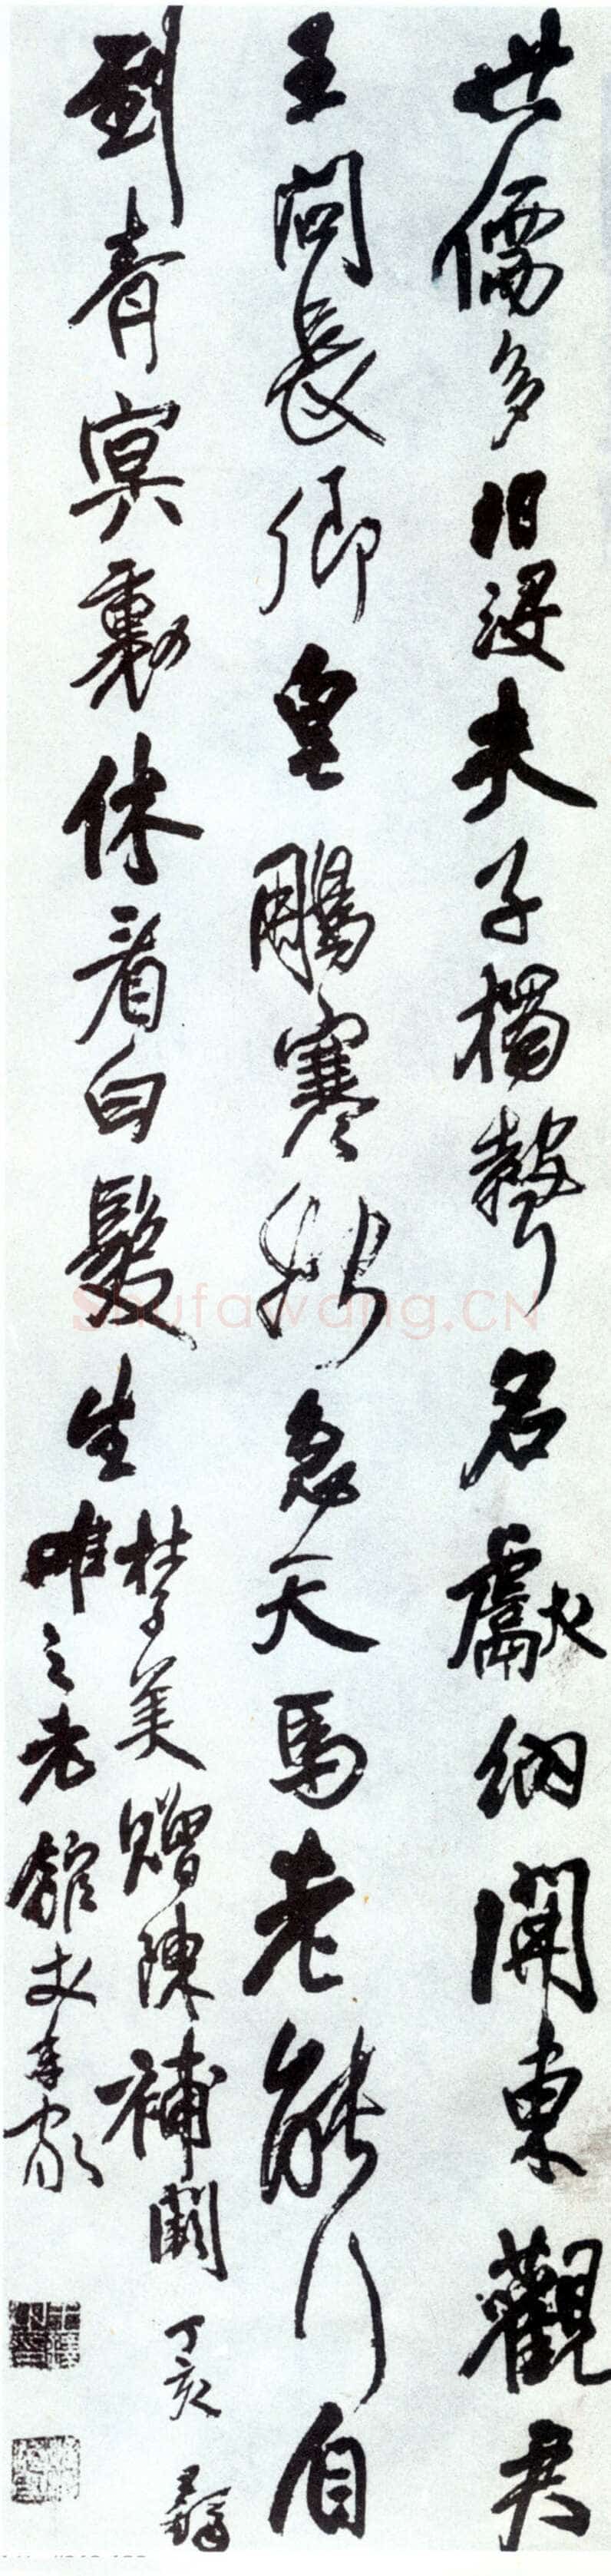 世儒多汩没夫子獨聲名獻納開東觀君
王問長卿皂鵰寒始急天馬老能行自
到青冥裏休看白髮生
杜子美贈陳補闕丁亥
唯之老舘丈
Shufawang.CN